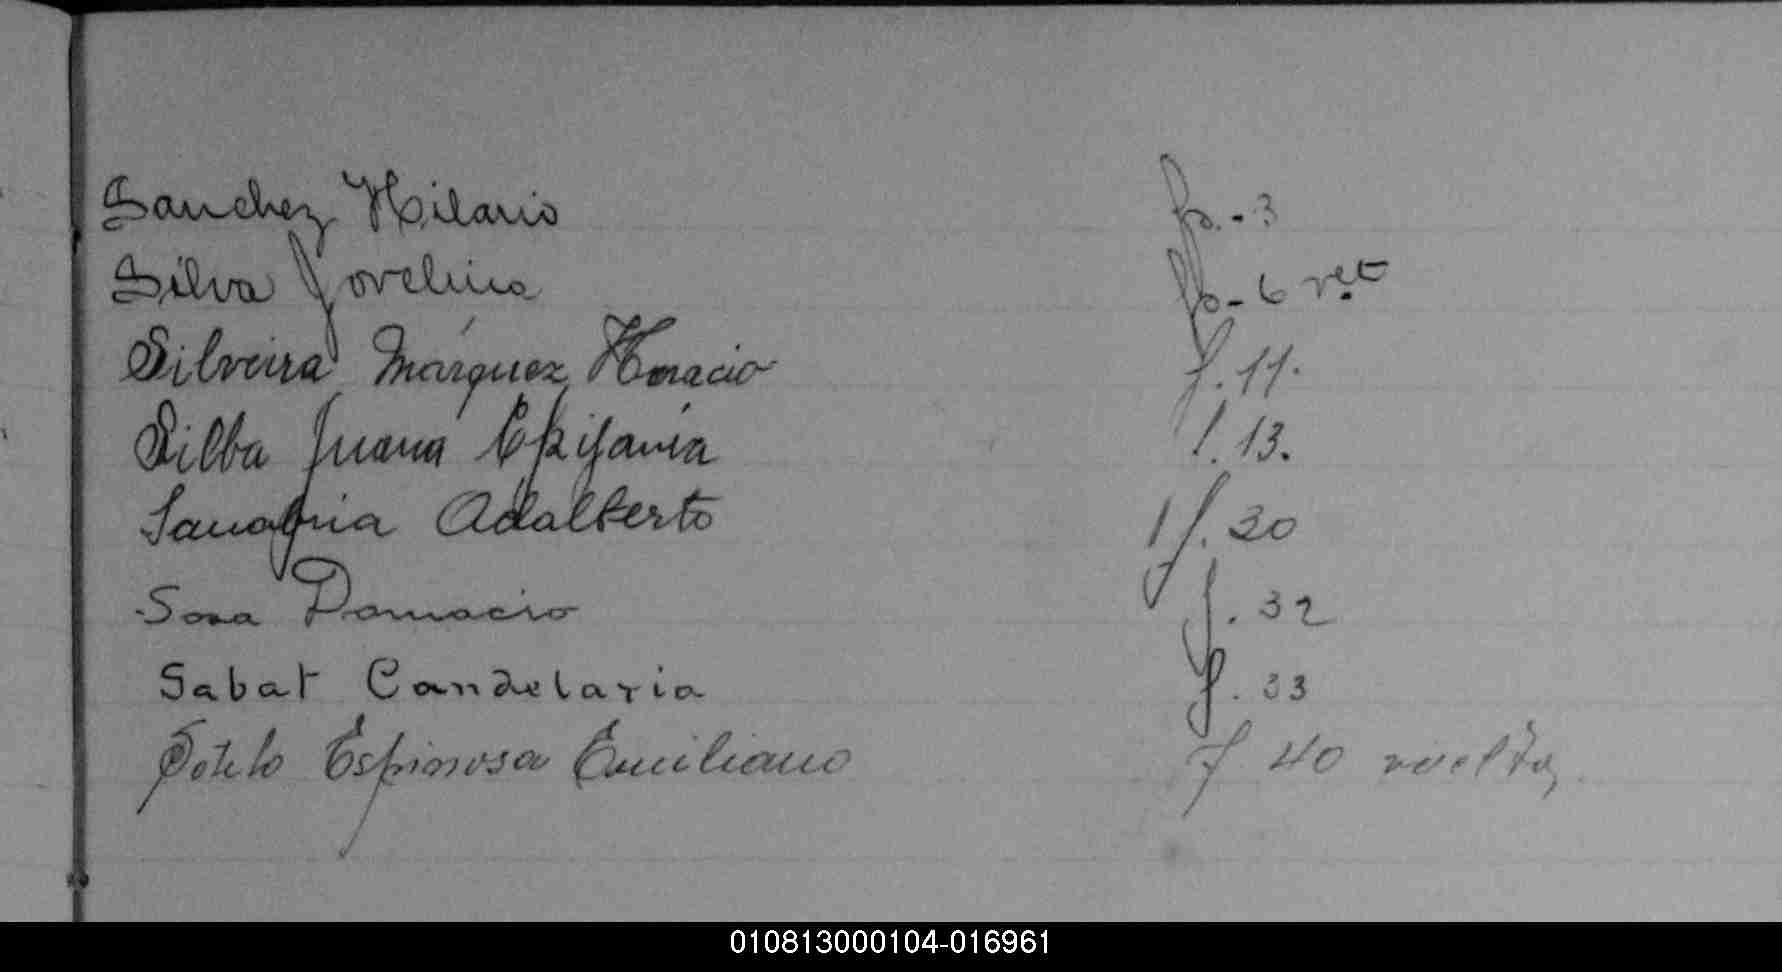 Sanchez Hilario fo.-3
Silva Jovelina fo-6 vet
Silveira Márquez Horacio f. 11.
Silba Juana Epifanía f. 13.
Sanabria Adalberto f. 30
Sosa Damacio f. 32
Sabat Candelaria f. 33
Sotelo Espinosa Emiliano f 40 vuelta
010813000104-016961